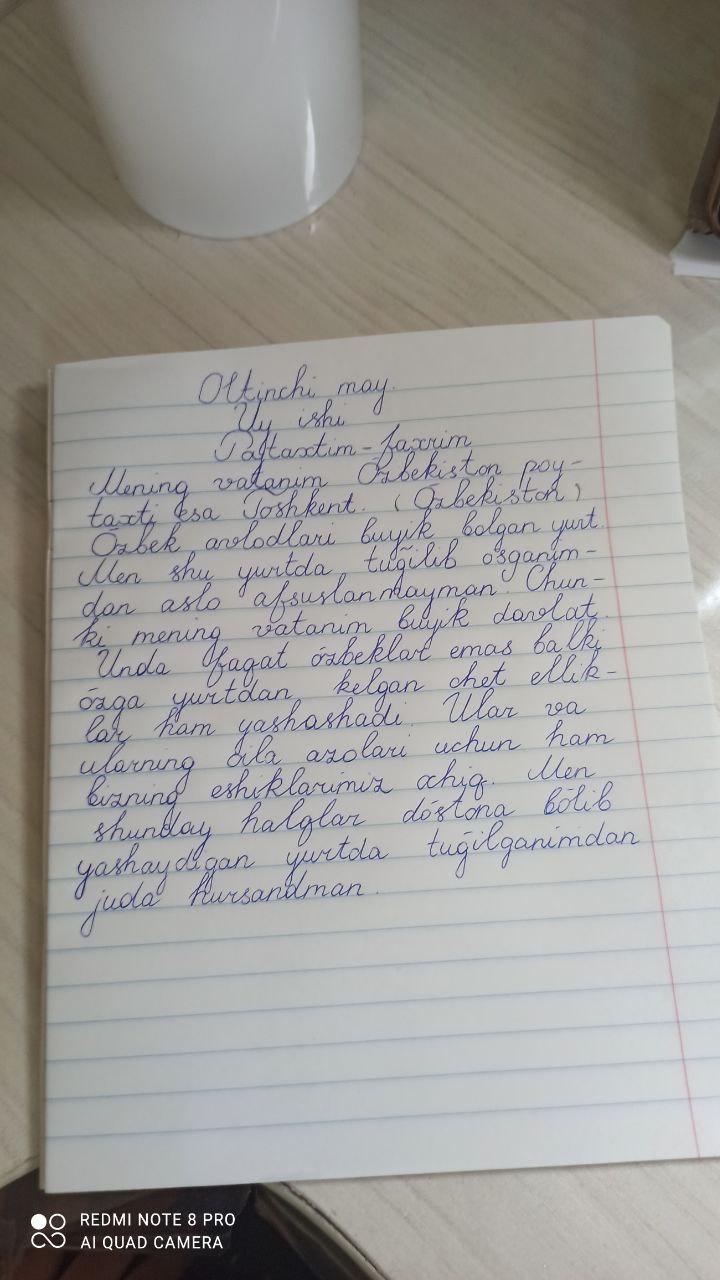 Oltinchi may.
Uy ishi
Paytaxtim - faxrim
Mening vatanim Ózbekiston poy-
taxti esa Toshkent. (Ózbekiston)
Ózbek avlodlari buyik bolgan yurt.
Men shu yurtda tug̃ilib ósganim-
dan aslo afsuslanmayman. Chun-
ki mening vatanim buyik davlat.
Unda faqat ózbeklar emas balki
ózga yurtdan kelgan chet ellik-
lar ham yashashadi. Ular va
ularning oila azolari uchun ham
bizning eshiklarimiz ochiq. Men
shunday halqlar dóstona bólib
yashaydigan yurtda tug̃ilganimdan
juda hursandman.
REDMI NOTE 8 PRO
AI QUAD CAMERA